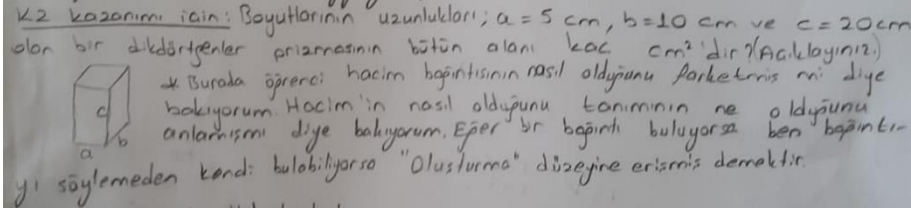 K2 kazanımı için: Boyutlarının uzunlukları; a = 5 cm, b=10 cm ve c = 20cm
olan bir dikdörtgenler prizmasının bütün alanı kaç cm² 'dir? (Açıklayınız.)
* Burada öğrenci hacim bağıntısının nasıl olduğunu farketmiş mi diye
bakıyorum. Hacim'in nasıl olduğunu tanımının ne olduğunu
anlamışmı diye bakıyorum. Eğer bir bağıntı buluyorsa ben bağıntı-
yı söylemeden kendi bulabiliyorsa "Oluşturma" düzeyine erişmiş demektir.
c
b
a